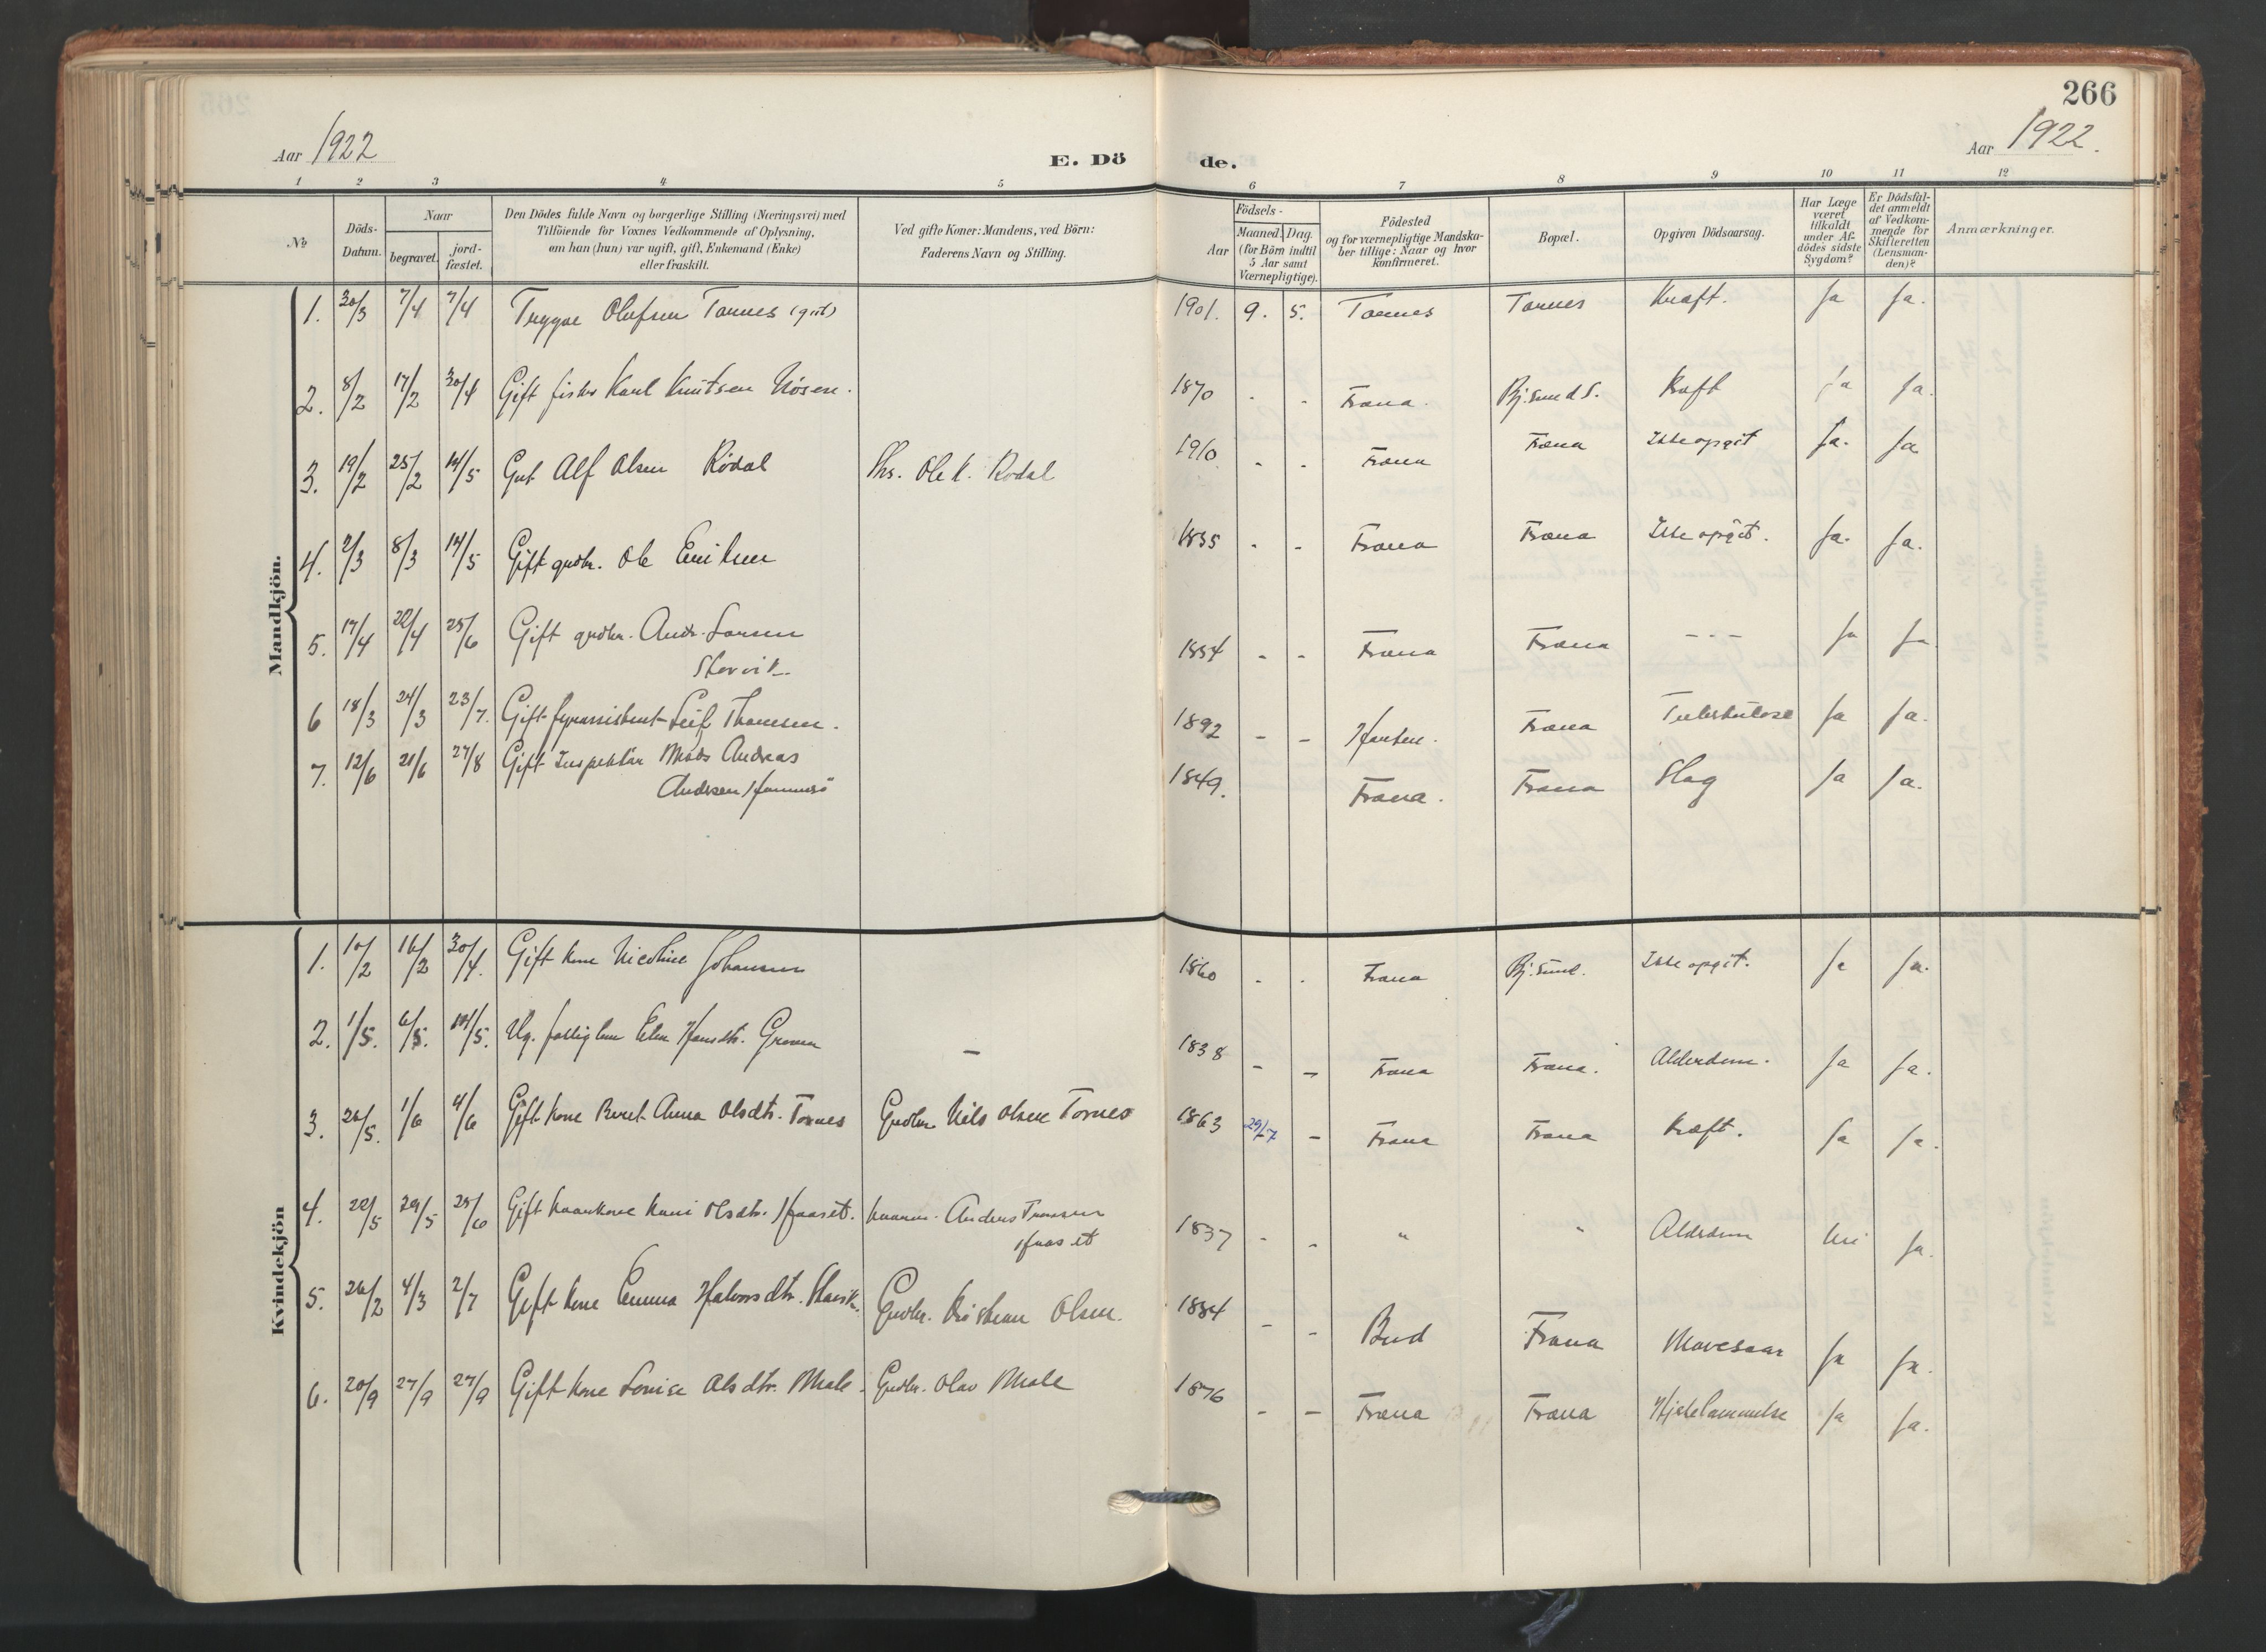 266
Aar 1922
E. Dö
de.
Aar 1922.
1 2 3 4 5 6 7 8 9 10 11 12
№
Döds-
Datum.
Naar
begravet.
jord-
fæstet.
Den Dödes fulde Navn og borgerlige Stilling (Næringsvei) med
Tilföiende for Voxnes Vedkommende af Oplysning,
om han (hun) var ugift, gift, Enkemand (Enke)
eller fraskilt.
Ved gifte Koner: Mandens, ved Börn:
Faderens Navn og Stilling.
Födsels-
Aar
Maaned. Dag.
(for Börn indtil
5 Aar samt
Værnepligtige).
Födested
og for værnepligtige Mandska-
ber tillige: Naar og hvor
konfirmeret.
Bopæl.
Opgiven Dödsaarsag.
Har Læge
været
tilkaldt
under Af-
dödes sidste
Sygdom?
Er Dödsfal-
det anmeldt
af Vedkom-
mende for
Skifteretten
(Lensman-
den)?
Anmærkninger.
Mandkjön.
1. 30/3 7/4 7/4 Trygve Olufsen Tornes (gut) 1901. 9. 5. Tornes Tornes Kræft. Ja Ja.
2. 8/2 17/2 30/4 Gift fisker Karl Knutsen Nøsen. 1870 - - Fræna. Bj.sunds. Kræft Ja Ja.
3. 19/2 25/2 14/5 Gut Alf Olsen Rödal Ole K. Rodal 1910 - - Fræna Fræna Ikke opgit Ja. Ja
4. 2/3 8/3 14/5 Gift grdbr. Ole Eriksen 1835 - - Fræna Fræna Ikke opgit. Ja. Ja.
5. 17/4 22/4 25/6 Gift grdbr. Andr. Larsen
Storvik 1854 - - Fræna Fræna - - - Ja Ja
6 18/3 24/3 23/7. Gift fyrassistent Leif Thomesen. 1892 - - Fræna Tuberkulose Ja Ja.
7. 12/6 21/6 27/8 Gift Inspektör Mads Andreas
Andresen Hammerö 1849. Fræna. Fræna Slag Ja Ja.
Kvindekjön
1. 10/2 16/2 30/4. Gift kone Nicoline Johansen 1860 - - Fræna Bj.sund. Ikke opgit. Ja Ja.
2. 1/5. 6/5. 14/5. Ug. fattiglem Elen Hansdtr. - 1838 - - Fræna Fræna. Alderdom. Ja Ja.
3. 26/5. 1/6 4/6 Gift kone Beret Anna Olsdtr. Tornes Grdbr. Nils Olsen Tornes 1863 29/7 - Fræna Fræna Kræft. Ja Ja.
4. 22/5 29/5 25/6 Gift kaarkone Kari Olsdtr. Haaset. kaarm. Anders
Haaset 1837 - - " " Alderdom Nei Ja.
5. 26/2 4/3 2/7 Gift kone Emma Halvorsdtr. Grdbr. Kristian Olsen. 1884 - - Bud Fræna Mavesaar Ja Ja.
6. 20/9 27/9 27/9 Gift kone Lovise Olsdtr. Male. Grdbr. Olav Male 1876 - - Fræna Fræna Hjertelammelse Ja Ja.